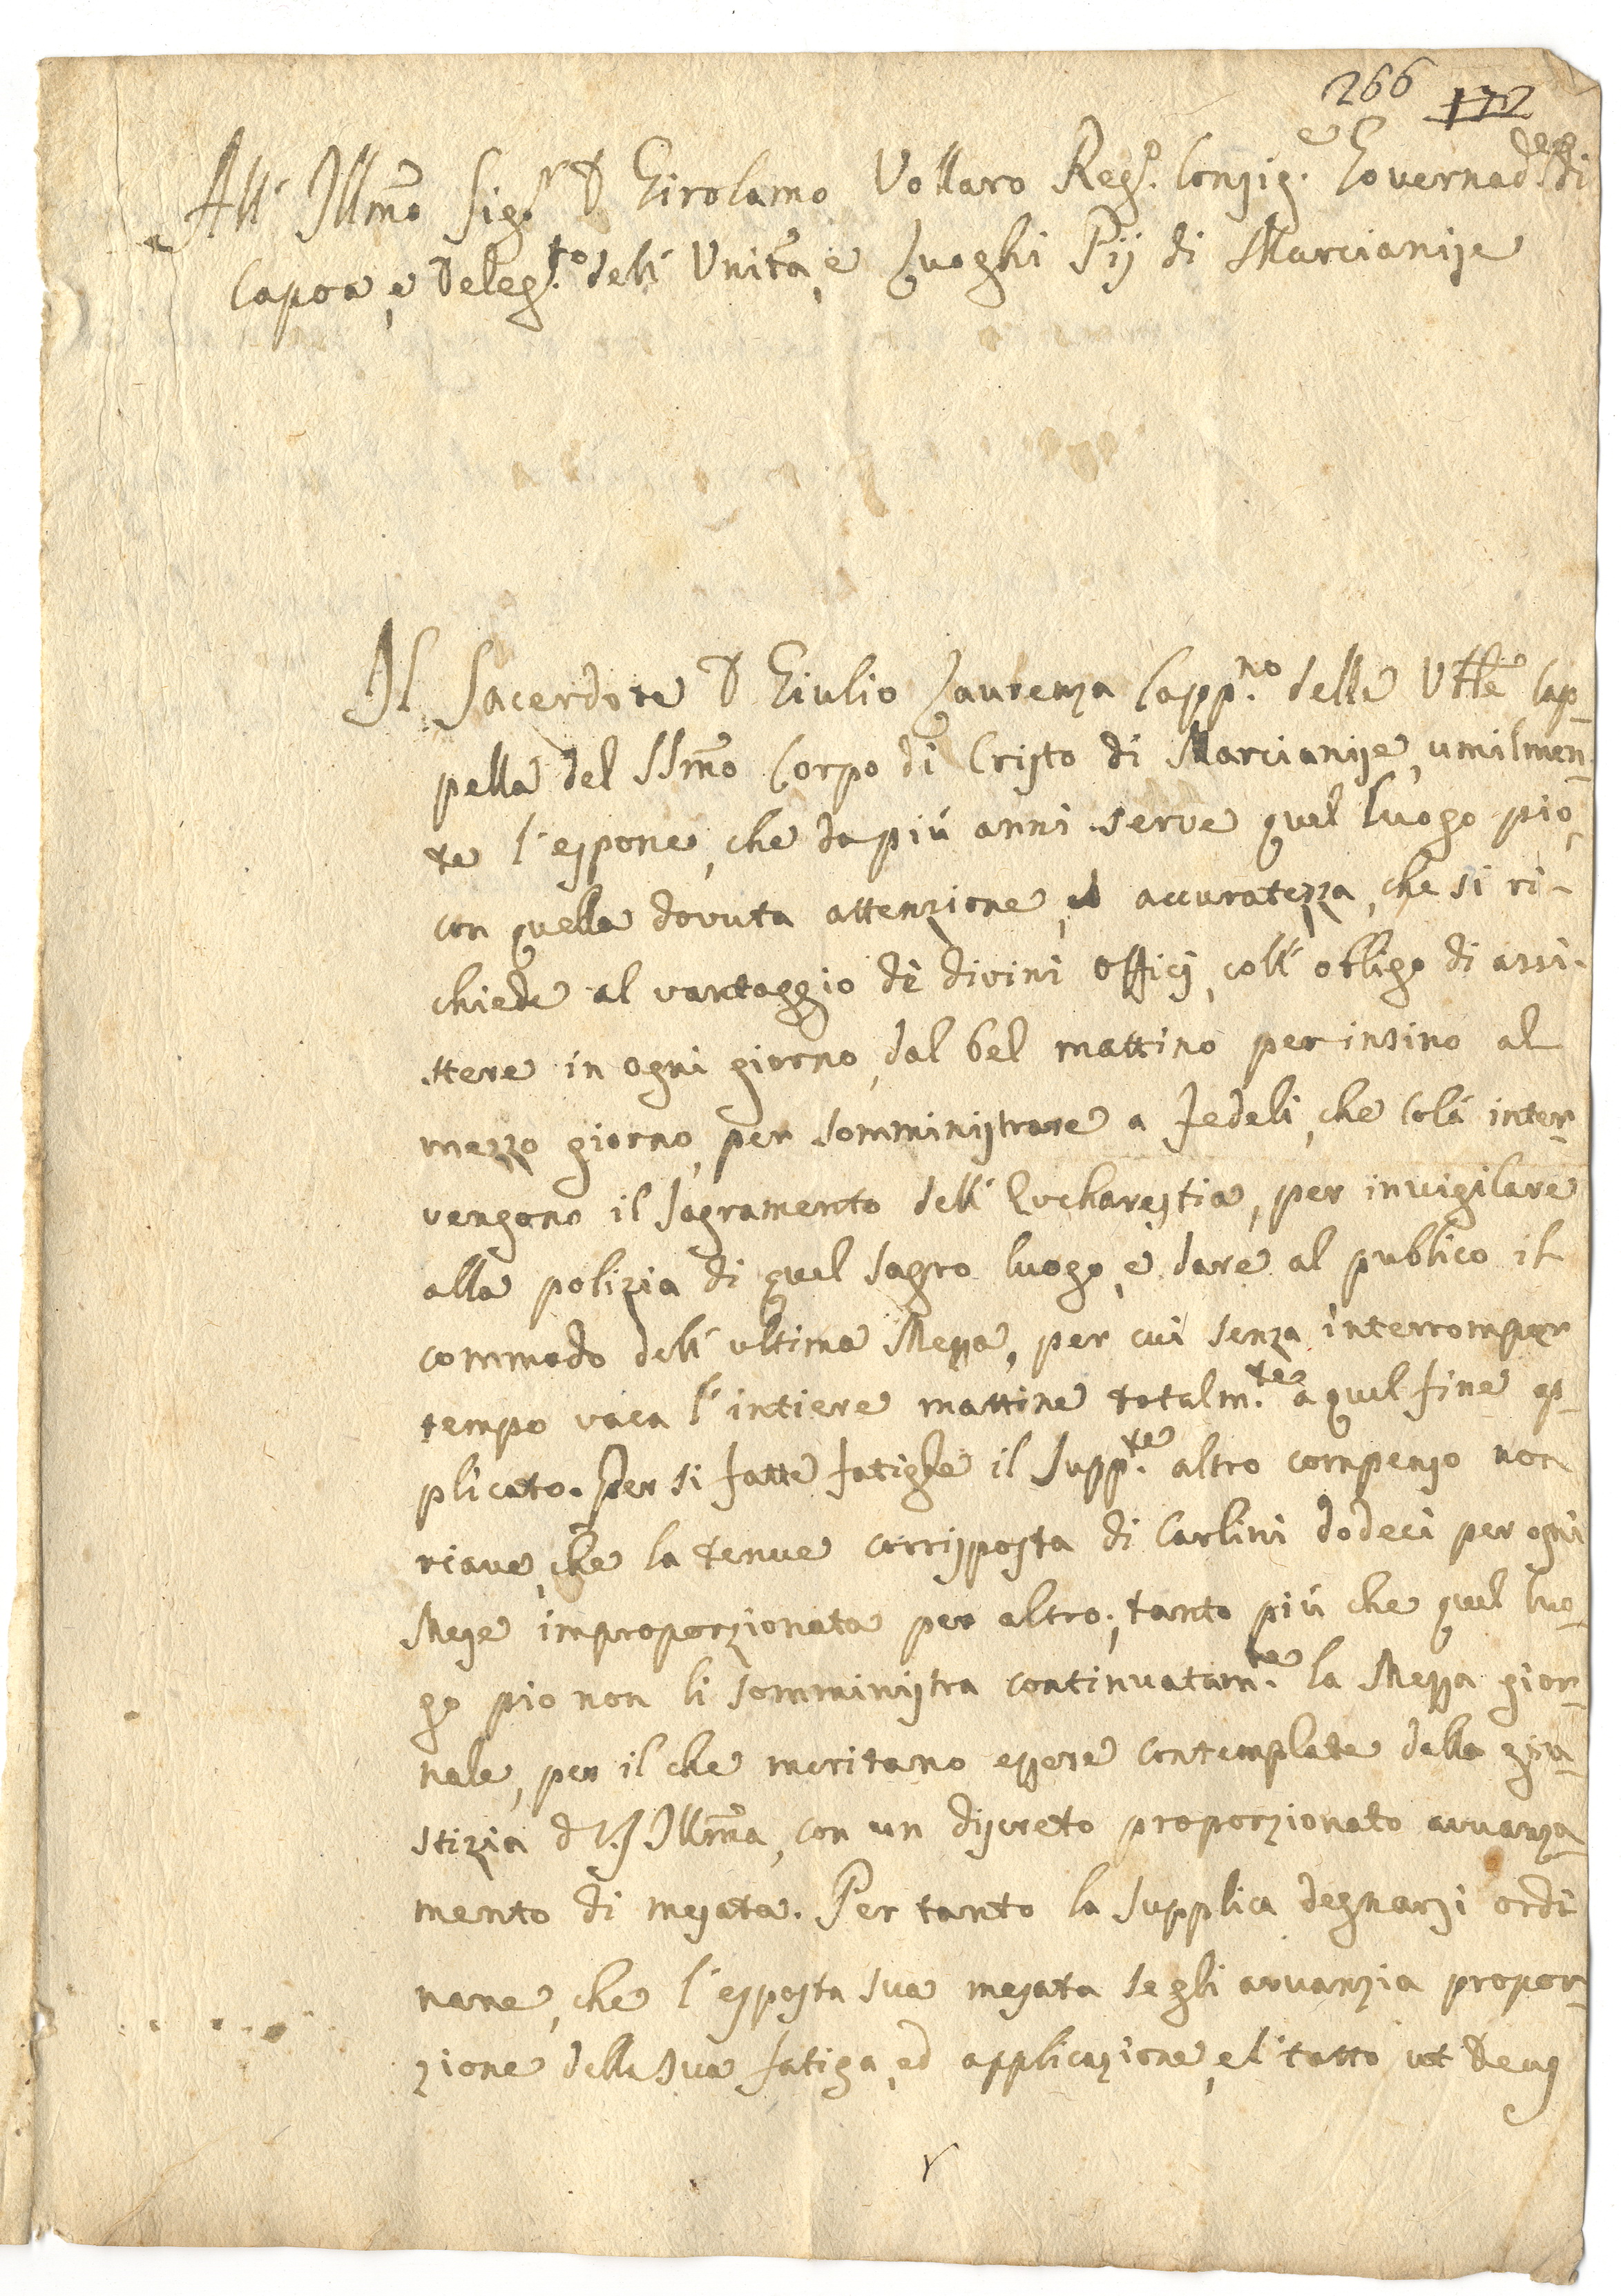 266 172
All' Illmo Sigr D Girolamo Vollaro Rego. Consig.e Governad.re di
Capoa, e Deleg.to dell' Unità, e Luoghi Pij di Marcianise
Il Sacerdote D Giulio Laurenza Capp.no delle Cap-
pella del SSmo Corpo di Cristo di Marcianise, umilmen-
te l'espone, che da più anni serve quel luogo pio,
con quella dovuta attenzione, ed accuratezza, che si ri-
chiede al vantaggio dè divini officj, coll' obligo di assi-
stere in ogni giorno, dal bel mattino per insino al
mezzo giorno, per somministrare a fedeli, che colà inter-
vengono il sagramento dell' Eucharestia, per invigilare
alla polizia di quel sagro luogo, e dare al publico il
commodo dell' ultima Messa, per cui senza interromper
tempo vaca l'intiere mattine totalm.te a quel fine ap-
plicato. Per si fatte fatighe il supp.te altro compenso non
riave, che la tenue corrisposta di Carlini dodeci per ogni
Mese improporzionata per altro; tanto più che quel luo-
go pio non li somministra continuatam.te la Messa gior-
nale, per il che meritano essere contemplate dalla giu-
stizia di V.S Illma, con un discreto proporzionato avvanza-
mento di mesata. Per tanto la supplica degnarsi ordi
nare, che l'esposta sua mesata se gli avvanzia propor-
zione della sua fatiga, ed applicazione, e l' tutto ut Deus